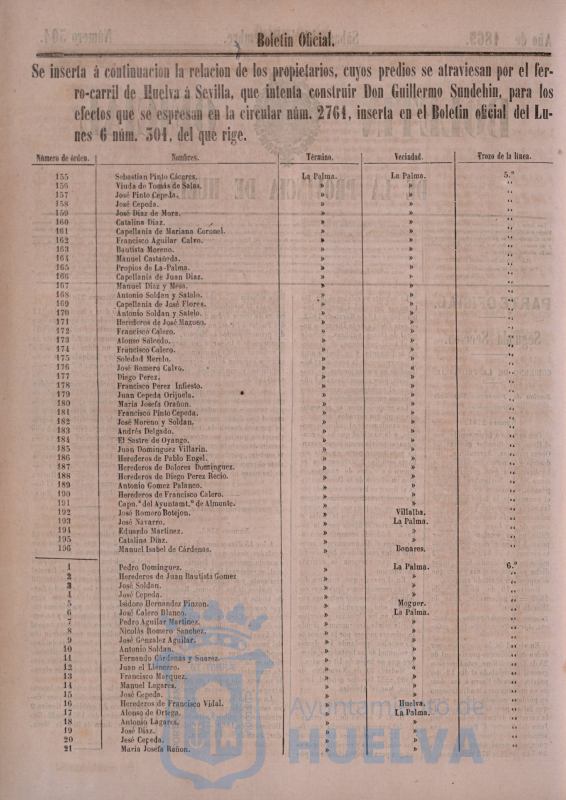 Boletin Oficial.
Se inserta á continuacion la relacion de los propietarios, cuyos predios se atraviesan por el fer-
ro-carril de Huelva á Sevilla, que intenta construir Don Guillermo Sundehin, para los
efectos que se espresan en la circular núm. 2764, inserta en el Boletin oficial del Lu-
nes 6 núm. 304, del que rige.
Número de órden. Nombres. Término. Vecindad. Trozo de la línea.
155 Sebastian Pinto Cáceres. La Palma. La Palma. 5.º
156 Viuda de Tomás de Salas. » » "
157 José Pinto Cepeda. » » "
158 José Cepeda. » » "
159 José Diaz de Mora. » » "
160 Catalina Diaz. » » "
161 Capellania de Mariana Coronel. » » "
162 Francisco Aguilar Calvo. » » "
163 Bautista Moreno. » » "
164 Manuel Castañeda. » » "
165 Propios de La-Palma. » » "
166 Capellania de Juan Diaz. » » "
167 Manuel Diaz y Mesa. » » "
168 Antonio Soldan y Satelo. » » "
169 Capellania de José Flores. » » "
170 Antonio Soldan y Satelo. » » "
171 Herederos de José Mazuso. » » "
172 Francisco Calero. » » "
173 Alonso Salcedo. » » "
174 Francisco Calero. » » "
175 Soledad Merelo. » » "
176 José Romero Calvo. » » "
177 Diego Perez. » » "
178 Francisco Perez Infiesto. » » "
179 Juan Cepeda Orijuela. » » "
180 Maria Josefa Orañon. » » "
181 Francisco Pinto Cepeda. » » "
182 José Moreno y Soldan. » » "
183 Andrés Delgado. » » "
184 El Sastre de Oyango. » » "
185 Juan Dominguez Villarin. » » "
186 Herederos de Pablo Engel. » » "
187 Herederos de Dolores Dominguez. » » "
188 Herederos de Diego Perez Recio. » » "
189 Antonio Gomez Palanco. » » "
190 Herederos de Francisco Calero. » » "
191 Capn.ª del Ayuntamt.º de Almonte. » » "
192 José Romero Botejon. » Villalba. "
193 José Navarro. » La Palma. "
194 Eduardo Martinez. » » "
195 Catalina Diaz. » » "
196 Manuel Isabel de Cárdenas. » Bonares. "
1 Pedro Dominguez. » La Palma. 6.º
2 Herederos de Juan Bautista Gomez » » "
3 José Soldan. » » "
4 José Cepeda. » » "
5 Isidoro Hernandez Pinzon. » Moguer. "
6 José Calero Blanco. » La Palma. "
7 Pedro Aguilar Martinez. » » "
8 Nicolás Romero Sanchez. » » "
9 José Gonzalez Aguilar. » » "
10 Antonio Soldan. » » "
11 Fernando Cárdenas y Suarez. » » "
12 Juan el Llencero. » » "
13 Francisco Marquez. » » "
14 Manuel Lagares. » » "
15 José Cepeda. » » "
16 Herederos de Francisco Vidal. » Huelva. "
17 Alonso de Ortega. » La Palma. "
18 Antonio Lagares. » » "
19 José Diaz. » » "
20 José Cepeda. » » "
21 Maria Josefa Rañon. » » "
Ayuntamiento de
HUELVA